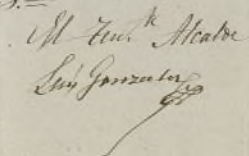 El Ten.te Alcalde
Luis Gonzalez